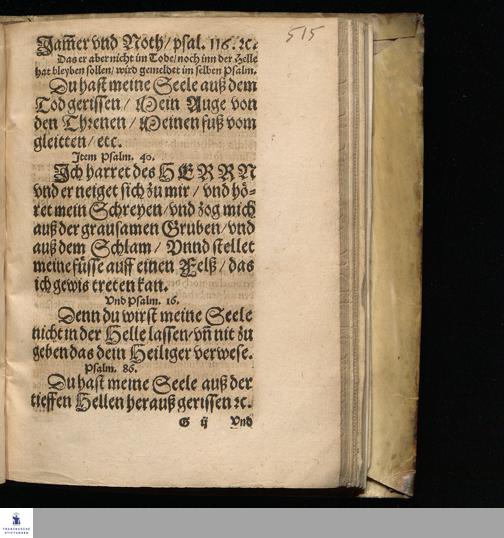 515
Jam̃er vnd Nöth/ psal. 116. ꝛc.
Das er aber nicht im Tode/ noch inn der Helle
hat bleyben sollen/ wird gemeldet im selben Psalm.
Du hast meine Seele auß dem
Tod gerissen/ Mein Auge von
den Threnen/ Meinen fuß vom
gleitten/ etc.
Item Psalm. 40.
Ich harret des HERRN
vnd er neiget sich zu mir/ vnd hö-
ret mein Schreyen/ vnd zog mich
auß der grausamen Gruben/ vnd
auß dem Schlam/ Vnnd stellet
meine füsse auff einen Felß/ das
ich gewis treten kan.
Vnd Psalm. 16.
Denn du wirst meine Seele
nicht in der Helle lassen/ vñ nit zu
geben das dein Heiliger verwese.
Psalm. 86.
Du hast meine Seele auß der
tieffen Hellen herauß gerissen ꝛc.
G ij Vnd
FRANCKESCHE
STIFTUNGEN